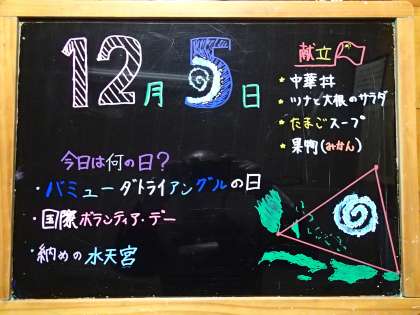 12月5日
献立
中華丼
ツナと大根のサラダ
たまごスープ
果物(みかん)
今日は何の日?
・バミューダトライアングルの日
・国際ボランティア・デー
・納めの水天宮